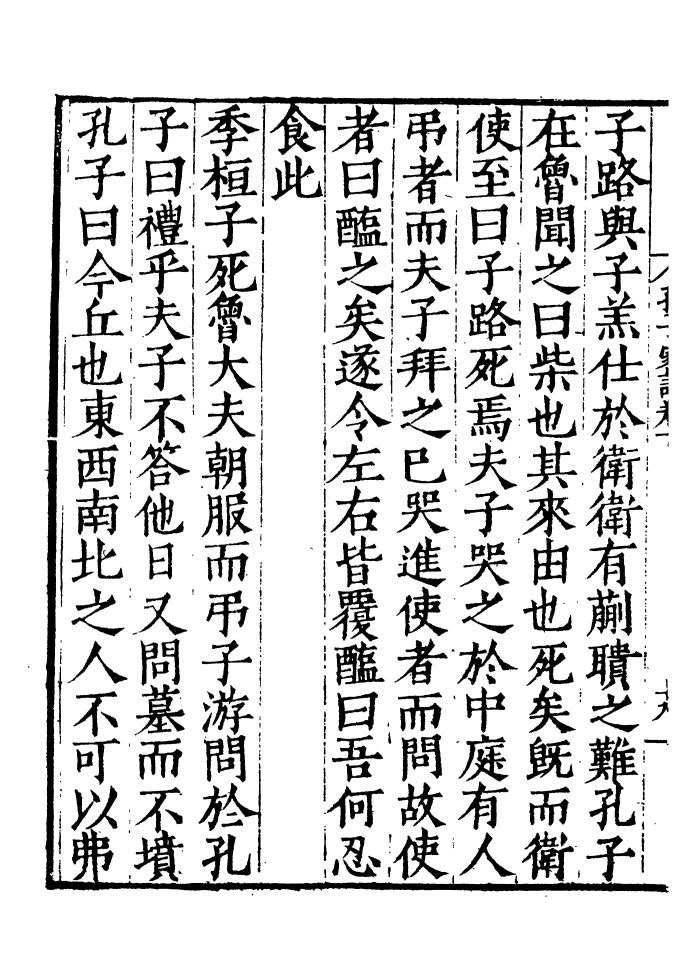 子路與子羔仕於衛衛有蒯聵之難孔子
在魯聞之曰柴也其來由也死矣既而衛
使至曰子路死焉夫子哭之於中庭有人
弔者而夫子拜之已哭進使者而問故使
者曰醢之矣遂令左右皆覆醢曰吾何忍
食此
季桓子死魯大夫朝服而弔子游問於孔
子曰禮乎夫子不答他日又問墓而不墳
孔子曰今丘也東西南北之人不可以弗